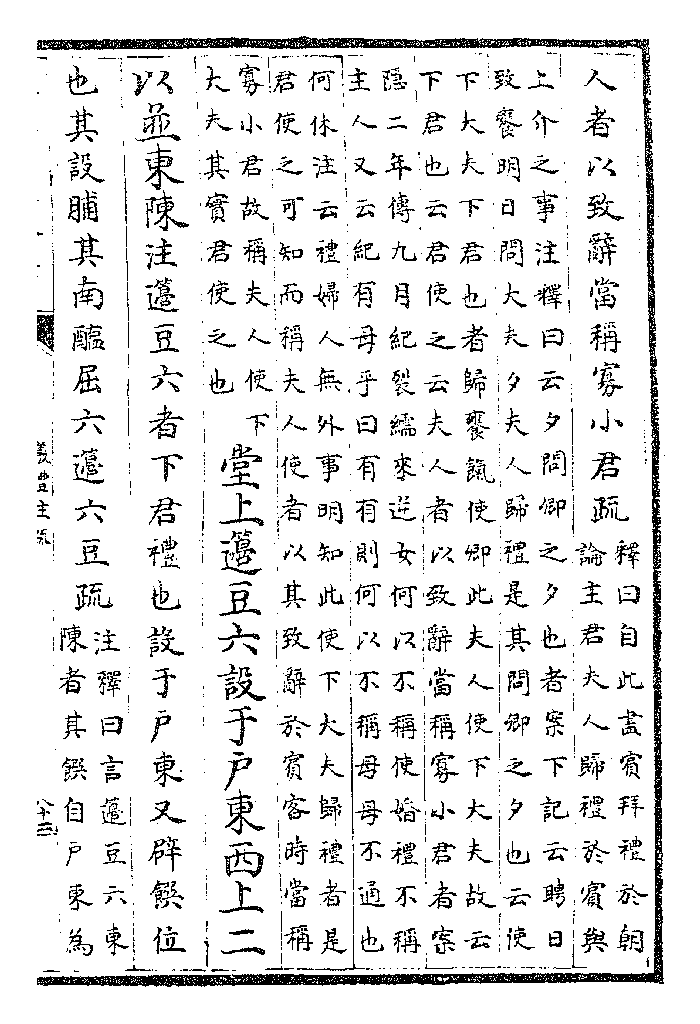 人者以致辭當稱寡小君疏
釋曰自此盡賓拜禮於朝
論主君夫人歸禮於賓與
上介之事注釋曰云夕問卿之夕也者案下記云聘日
致饔明日問大夫夕夫人歸禮是其問卿之夕也云使
下大夫下君也者歸饔餼使卿此夫人使下大夫故云
下君也云君使之云夫人者以致辭當稱寡小君者案
隱二年傳九月紀裂繻來逆女何以不稱使婚禮不稱
主人又云紀有母乎曰有有則何以不稱母母不通也
何休注云禮婦人無外事明知此使下大夫歸禮者是
君使之可知而稱夫人使者以其致辭於賓客時當稱
寡小君故稱夫人使下
大夫其實君使之也
堂上籩豆六設于戶東西上二
以並東陳注籩豆六者下君禮也設于戶東又辟饌位
也其設脯其南醢屈六籩六豆疏
注釋曰言籩豆六東
陳者其饌自戶東為
儀豊主疏
八十三